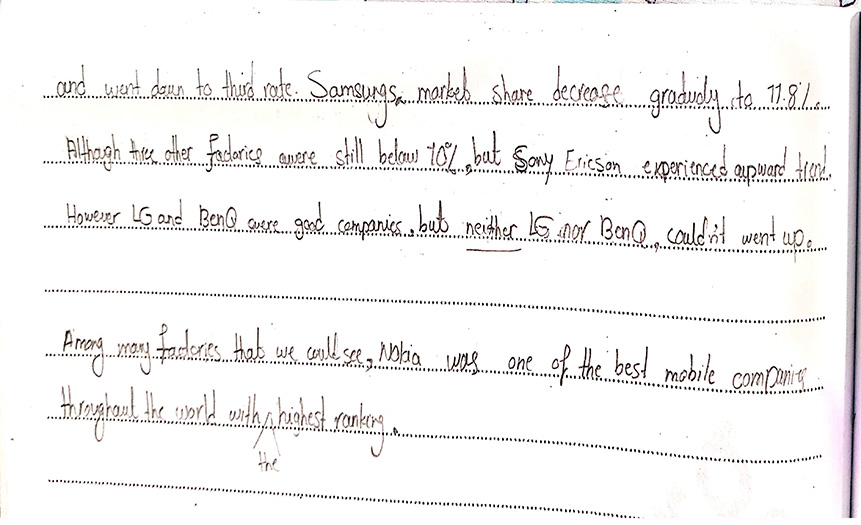 and went down to third rate. Samsungs market share decrease gradudly to 11.8%.
Although three other factories were still below 10%, but Sony Ericson experienced upward trend.
However LG and BenQ were good companies, but neither LG nor BenQ, couldn't went up.
Among many factories that we could see, Nokia was one of the best mobile companies
throughout the world with highest ranking.
the